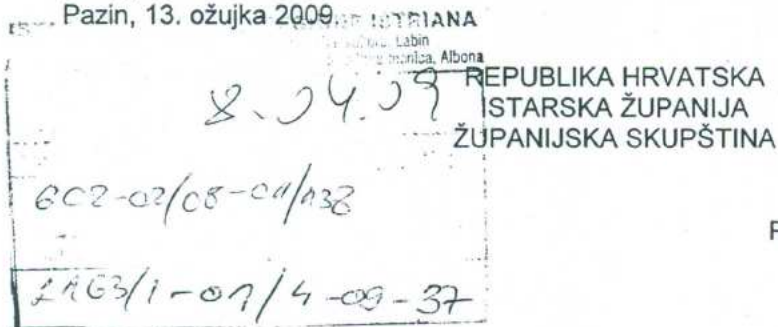 Pazin, 13. ožujka 2009.
ISTRIANA
Labin
Albona
8.04.09
REPUBLIKA HRVATSKA
ISTARSKA ŽUPANIJA
ŽUPANIJSKA SKUPŠTINA
602-02/08-01/132
2163/1-01/4-09-37